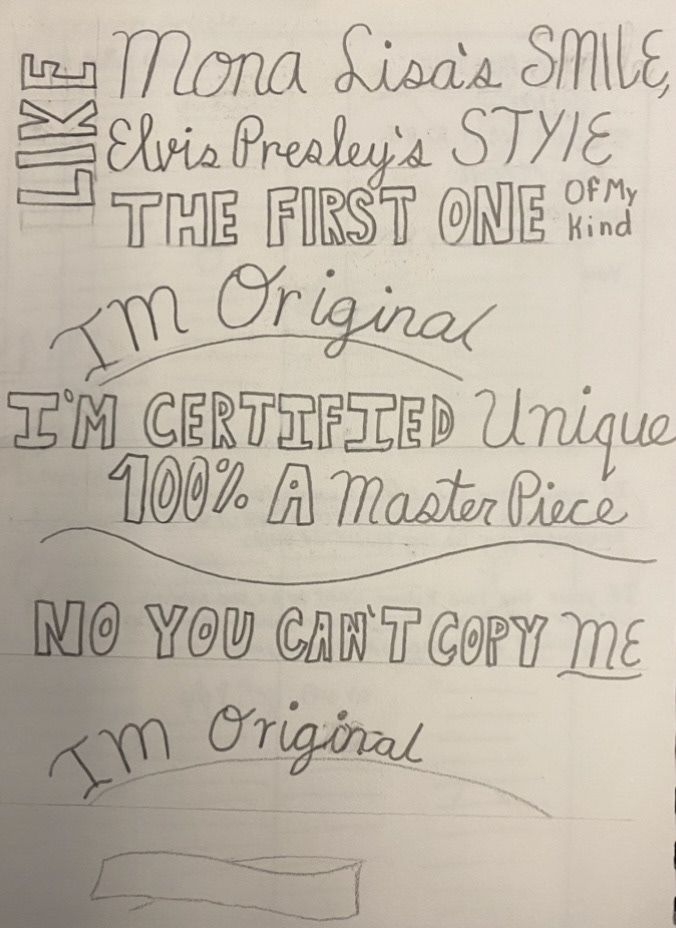 LIKE
Mona Lisa's SMILE,
Elvis Presley's STYlE
THE FIRST ONE Of My Kind
I'm Original
I'M CERTIFIED Unique
100% A Master Piece
NO YOU CAN'T COPY ME
Im Original